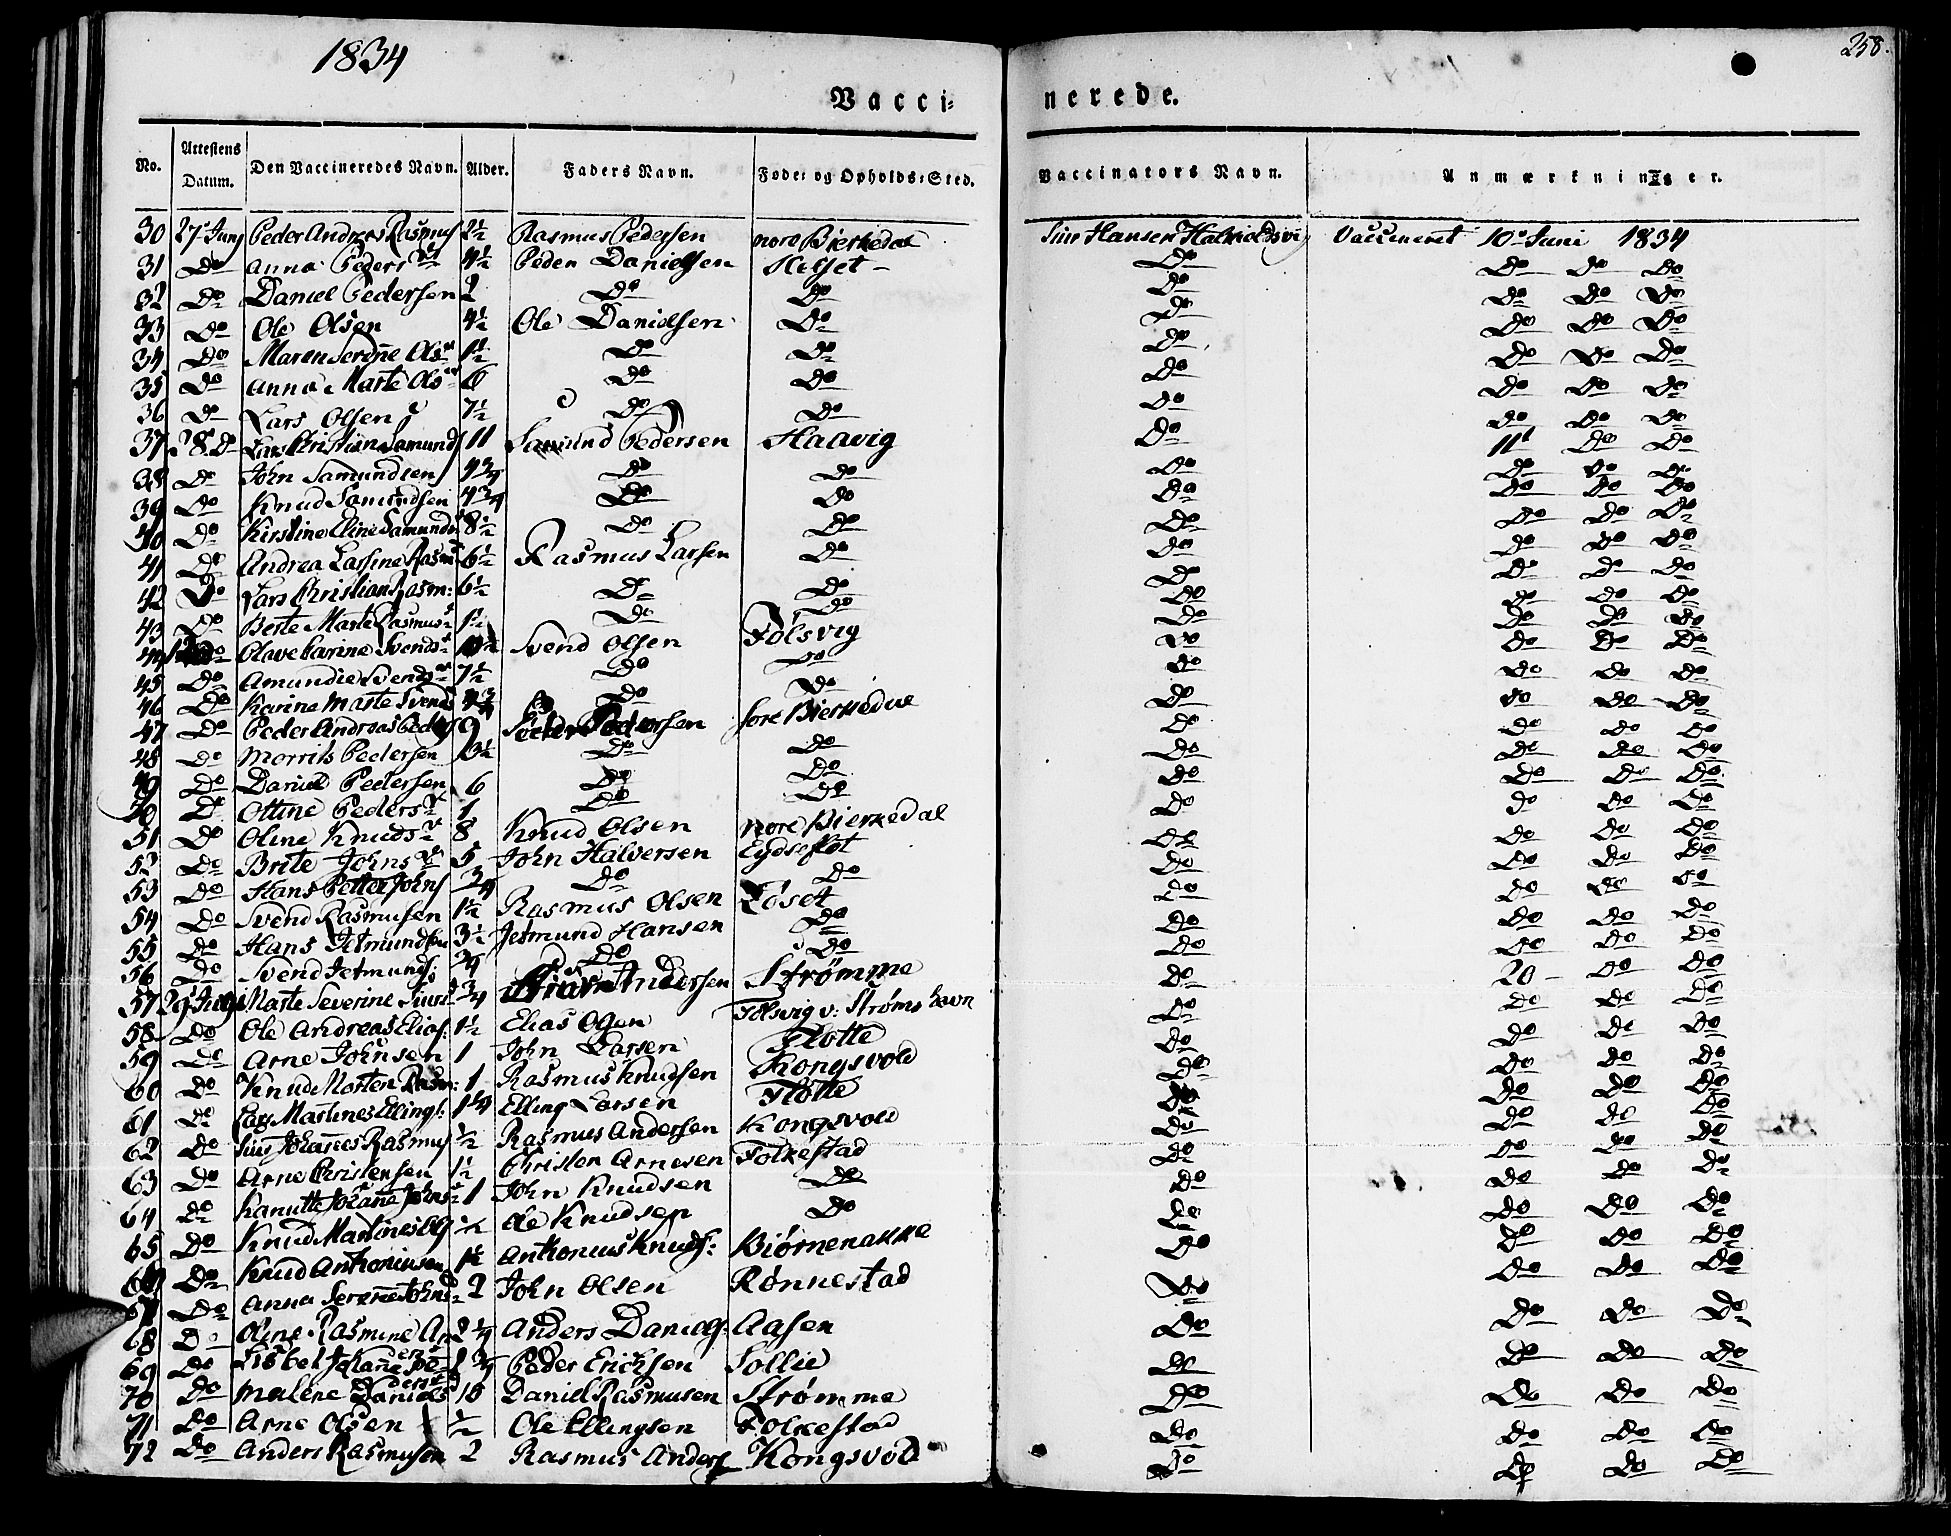 1834
258.
Vacci-
nerede.
No. Attestens Datum. Den Vaccineredes Navn. Alder. Faders Navn. Føde- og Opholds-Sted. Vaccinators Navn. Anmærkninger.
30 27 Juny Peder Andreas Rasmus 2½ Rasmus Pedersen nore Bierkedal Siur Hansen Vaccineret 10de Juni 1834
31 Do Anna Peders 4½ Peder Danielsen Hilset Do Do Do Do
32 Do Daniel Pedersen 2 Do Do Do Do Do Do
33 Do Ole Olsen 4½ Ole Danielsen Do Do Do Do Do
34 Do Maren Serine Ols 1½ Do Do Do Do Do Do
35 Do Anna Marte Ols 6 Do Do Do Do Do Do
36 Do Lars Olsen 7½ Do Do Do Do Do Do
37 28 Do Lars Christian Samunds 11 Samund Pedersen Haavig Do 11t Do Do
38 Do John Samundsen 4¾ Do Do Do Do Do Do
39 Do Knud Samundsen 4¾ Do Do Do Do Do Do
40 Do Kirstine Eline Samunds 8½ Do Do Do Do Do Do
41 Do Andrea Larsine Rasm 6½ Rasmus Larsen Do Do Do Do Do
42 Do Lars Christian Rasm: 6½ Do Do Do Do Do Do
43 Do Berte Marte Rasmus 1½ Do Do Do Do Do Do
44 Do Olave Carine Svends Svend Olsen Folsvig Do Do Do Do
45 Do Amundie Svends 7½ Do Do Do Do Do Do
46 Do Karine Marte Svends 4¾ Do Do Do Do Do Do
47 Do Peder Andreas Peders 9 Peder Pedersen søre Bierkedal Do Do Do Do
48 Do Morrits Pedersen Do Do Do Do Do Do
49 Do Daniel Pedersen 6 Do Do Do Do Do Do
50 Do Ottine Peders 1 Do Do Do Do Do Do
51 Do Oline Knuds 8 Knud Olsen nore Bierkedal Do Do Do Do
52 Do Brite Johns 5 John Halversen Eydseflot Do Do Do Do
53 Do Hans Petter Johns ¾ Do Do Do Do Do Do
54 Do Svend Rasmusen 1½ Rasmus Olsen Løset Do Do Do Do
55 Do Hans Jetmundsen 3½ Jetmund Hansen Do Do Do Do Do
56 Do Svend Jetmunds: ¾ Do Do Do 20 Do Do
57 29 July Marte Severine Siurs ¾ Andersen Strømme Do Do Do Do
58 Do Ole Andreas Elias: 1½ Elias Olsen Folsvig v: Strømshavn Do Do Do Do
59 Do Arne Johnsen 1 John Larsen Flotte Do Do Do Do
60 Do Knud Morten Rasm: 1 Rasmus Knudsen Kongsvold Do Do Do Do
61 Do Lars Martines Ellings: 1¼ Elling Larsen Flotte Do Do Do Do
62 Do Siur Johannes Rasmus ½ Rasmus Andersen Kongsvold Do Do Do Do
63 Do Arne Christensen 1½ Christen Arnesen Folkestad Do Do Do Do
64 Do Kanutte Johanne Johns 1 John Knudsen Do Do Do Do Do
65 Do Knud Martines Ols ½ Ole Knudsen Do Do Do Do Do
66 Do Knud Anthoniusen 1½ Anthonius Knuds: Biørnenakke Do Do Do Do
67 Do Anna Serine Johns 2 John Olsen Rønnestad Do Do Do Do
68 Do Oline Rasmine An ders 2¼ Anders Daniels: Aasen Do Do Do Do
69 Do Lisbet Johanne Pe ders 1¾ Peder Ericksen Sollie Do Do Do Do
70 Do Malene Daniels 10 Daniel Rasmusen Strømme Do Do Do Do
71 Do Arne Olsen ½ Ole Ellingsen Folkestad Do Do Do Do
72 Do Anders Rasmusen 2 Rasmus Anders Kongsvold Do Do Do Do